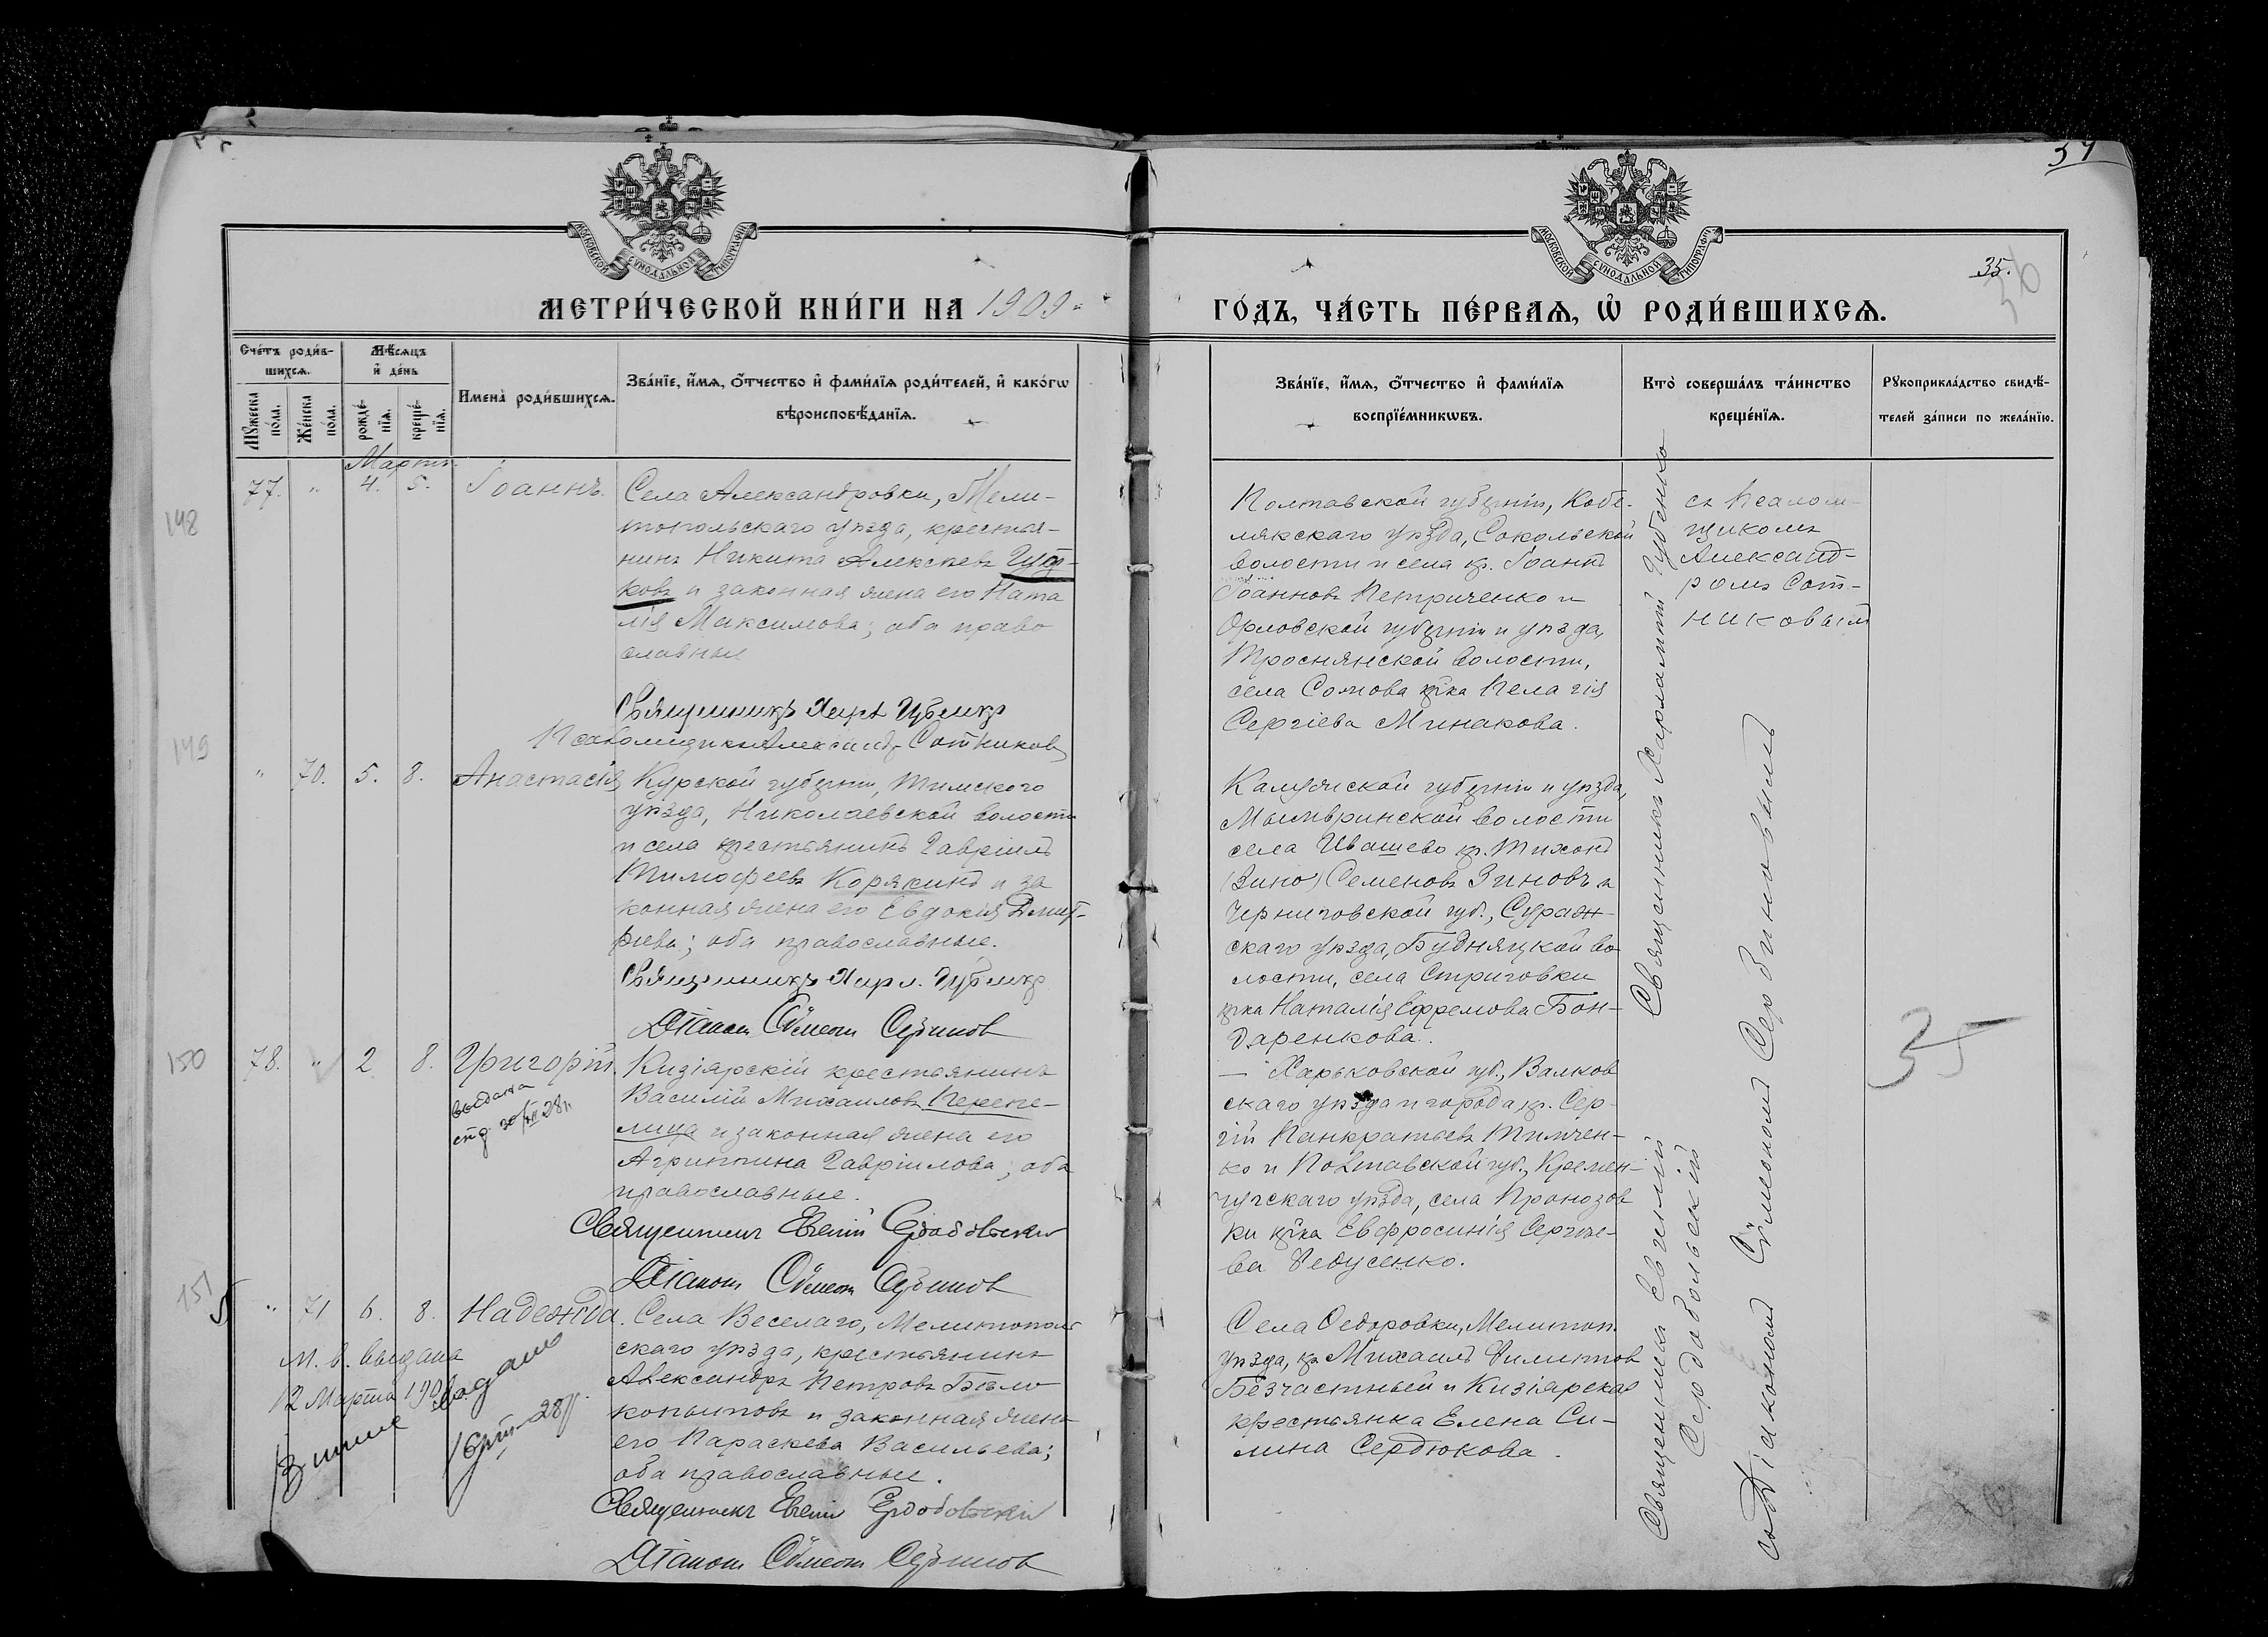 34
35.
МОСКОВСКОЙ СѴНОДАЛЬНОЙ ТИПОГРАФІИ
МОСКОВСКОЙ СѴНОДАЛЬНОЙ ТИПОГРАФІИ
МЕТРИ́ЧЕСКОЙ КНИ́ГИ НА 1909
ГО́ДЪ, ЧА́СТЬ ПЕ́РВАѦ, Ѡ҆ РОДИ́ВШИХСѦ.
Сче́тъ роди́в-
шихсѧ.
Мѣ́сѧцъ
и҆ де́нь
Мꙋ́жеска
по́ла.
Же́нска
по́ла.
рожде́-
нїѧ.
креще́-
нїѧ.
Имена̀ роди́вшихсѧ.
Зва́нїе, и҆́мѧ, ѻ҆́тчество и҆ фами́лїѧ роди́телей, и҆ како́гѡ
вѣроисповѣ́данїѧ.
Зва́нїе, и҆́мѧ, ѻ҆́тчество и҆ фами́лїѧ
воспрїе́мникѡвъ.
Кто̀ соверша́лъ та́инство
креще́нїѧ.
Рꙋкоприкла́дство свидѣ́-
телей за́писи по жела́нїю.
Мартъ.
148
77. " 4. 5. Іоаннъ.
Села Александровки, Мели-
топольскаго уѣзда, крестья-
нинъ Никита Алексѣевъ Гуд-
ковъ и законная жена его Ната
лія Максимова; оба право
славные
Священникъ Харл Губенко
Псаломщикъ Александр Сотников
Полтавской губерніи, Кобе-
лякскаго уѣзда, Сокольской
волости и села кр. Іоаннъ
Іоанновъ Петриченко и
Орловской губерніи и уѣзда,
Троснянской волости,
села Сомова кр-ка Пелагія
Сергіева Минакова.
Священникъ Харлампій Губенко
съ Псалом-
щикомъ
Александ-
ромъ Сот-
никовым
149
" 70. 5. 8. Анастасія
Курской губерніи, Тимского
уѣзда, Николаевской волости
и села крестьянинъ Гавріилъ
Тимофеевъ Корякинъ и за
конная жена его Евдокія Дмит-
ріева; оба православные.
Священникъ Харл. Губенко
Діаконъ Сѵмеон Сербинов
Калужской губерніи и уѣзда,
волости
села Ивашево кр. Тихонъ
(Зино) Семеновъ Зиновъ и
Черниговской губ., Сураж-
скаго уѣзда, Будняцкой во
лости, села Стриговки
кр-ка Наталія Ефремова Бон-
даренкова.
150
78. " 2 8. Григорій.
выдана
Кизіярскій крестьянинъ
Василій Михаиловъ Перепе-
лица и законная жена его
Агриппина Гавріилова; оба
православные.
Священник Евгеній Сердобольскій
Діаконъ Сѵмеон Сербинов
— Харьковской губ., Валков
скаго уѣзда и города, кр. Сер-
гій Панкратьевъ Тимчен-
ко и Полтавской губ., Кремен-
чугскаго уѣзда, села Пронозов
ки кр-ка Евфросинія Сергіе-
ва Федусенко.
35
151
" 71 6. 8. Надежда.
М. в. выдана
12 Марта
Села Веселаго, Мелитополь
скаго уѣзда, крестьянинъ
Александръ Петровъ Бѣло
копытовъ и законная жена
его Параскева Васильева;
оба православные.
Священникъ Евгеній Сердобольскій
Діаконъ Сѵмеон Сербинов
Села Ѳедоровки, Мелитоп.
уѣзда, кр. Михаилъ Филиппов
Безчастный и Кизіярская
крестьянка Елена Си-
лина Сердюкова.
Священникъ Евгеній
Сердобольскій
съ Діакономъ Сѵмеономъ Сербиновымъ